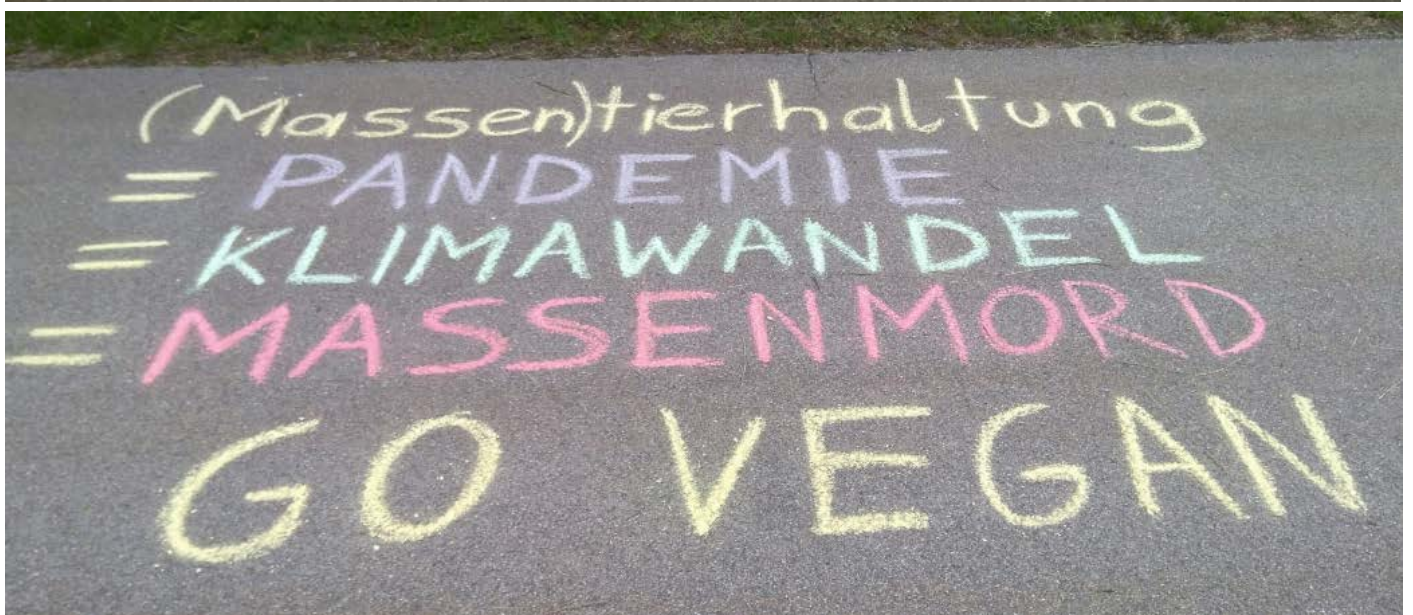 (Massen)tierhaltung
= PANDEMIE
= KLIMAWANDEL
= MASSENMORD
GO VEGAN